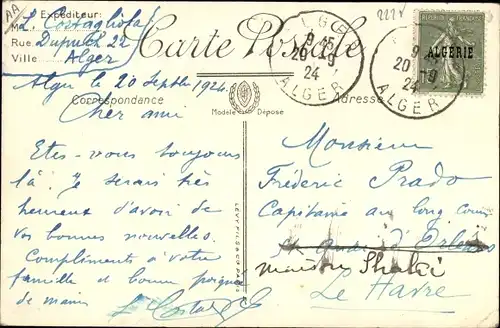 AA
Expéditeur:
M L. Costagliola
Rue Dupuch 22
Ville Alger
Carte Postale
ALGER
9 15
20 -9
24
ALGER
222V
9
20 -9
24
ALGER
ALGERIE
Alger le 20 Septbre 1924.
Correspondance
Modèle Déposé
Adresse
Cher ami
Etes-vous toujours
là. Je serais très
heureux d'avoir de
vos bonnes nouvelles.
Compliments à votre
famille et bonne poignée
de main
LÉVY FILS & CO PARIS
Monsieur
Fréderic Prado
Capitaine au long cours
quai d'Orléans
maison
Le Havre